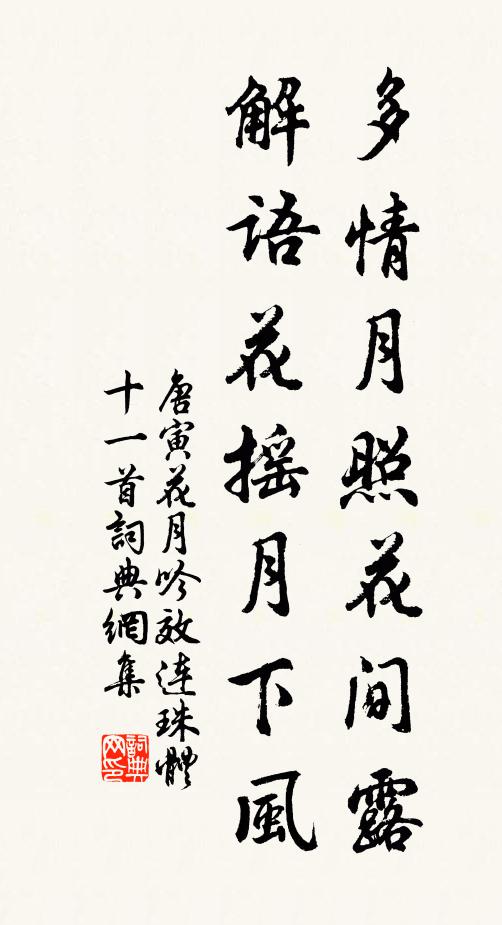 多情月照花間露
解語花摇月下風
唐寅花月吟效連珠體
十一首詞典網集
詞典
网印